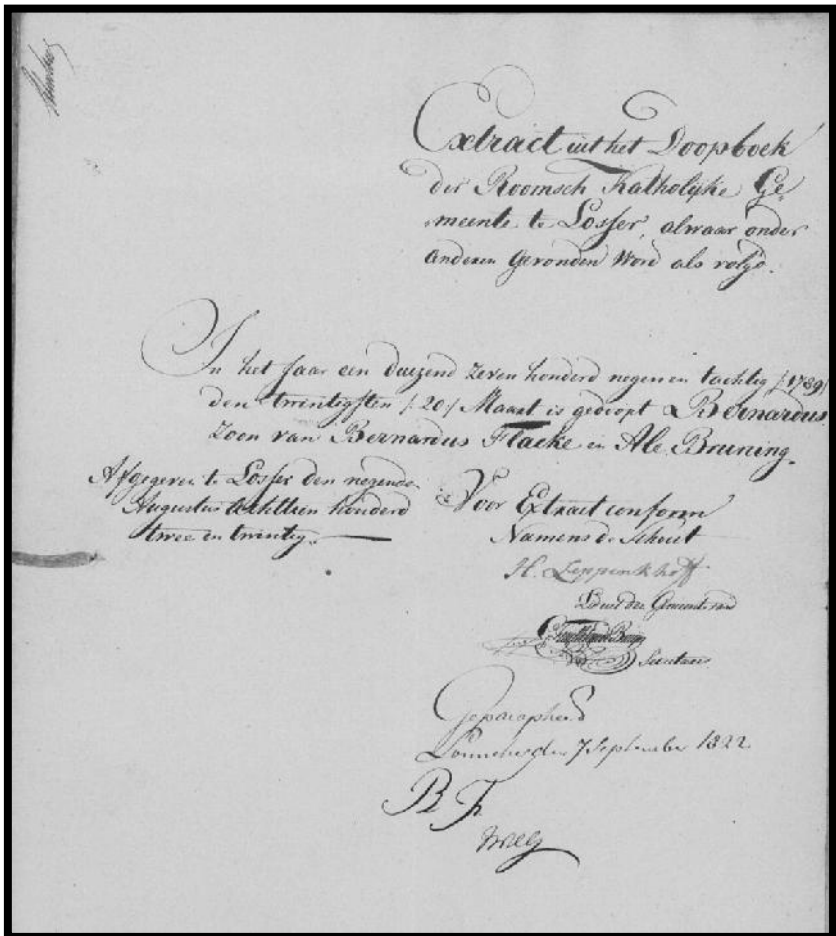 Extract uit het Doopboek
der Roomsch Katholijke Ge,
meente te Losser, alwaar onder
anderen Gevonden Word als volgt.
In het Jaar een duizend zeven honderd negen en tachtig /:1789/
den twintigsten /:20:/ Maart is gedoopt Bernardus
Zoon van Bernardus Flacke en Ale Bruning.
Afgegeven te Losser den negende
Augustus achttien honderd
twee en twintig.
Voor Extract conform
Namens de Schout
H. Leppenkhoff
Secretaris
Geparapheerd
Lonneker den 7 September 1822
B Th